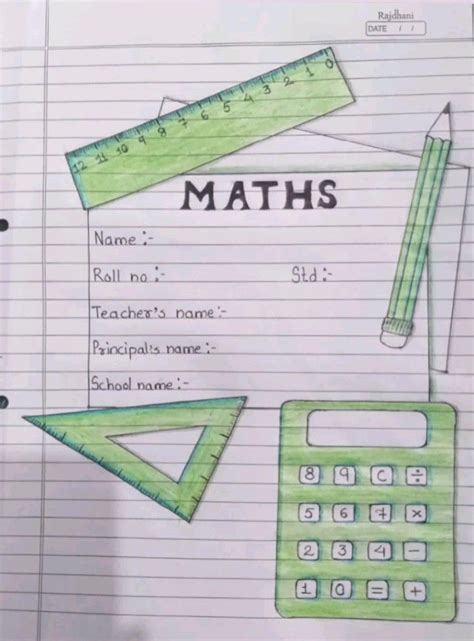 Rajdhani
DATE / /
12 11 10 9 8 7 6 5 4 3 2 1 0
MATHS
Name :-
Roll no :- Std :-
Teacher's name :-
Principal's name :-
School name :-
8 9 C ÷
5 6 7 ×
2 3 4 -
1 0 = +